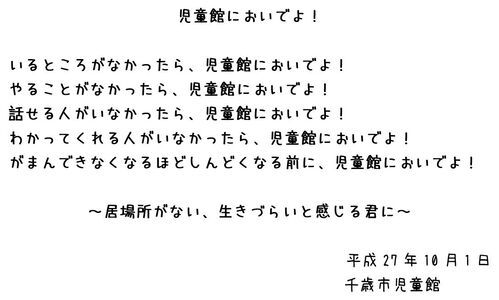 児童館においでよ！
いるところがなかったら、児童館においでよ！
やることがなかったら、児童館においでよ！
話せる人がいなかったら、児童館においでよ！
わかってくれる人がいなかったら、児童館においでよ！
がまんできなくなるほどしんどくなる前に、児童館においでよ！
～居場所がない、生きづらいと感じる君に～
平成27年10月1日
千歳市児童館